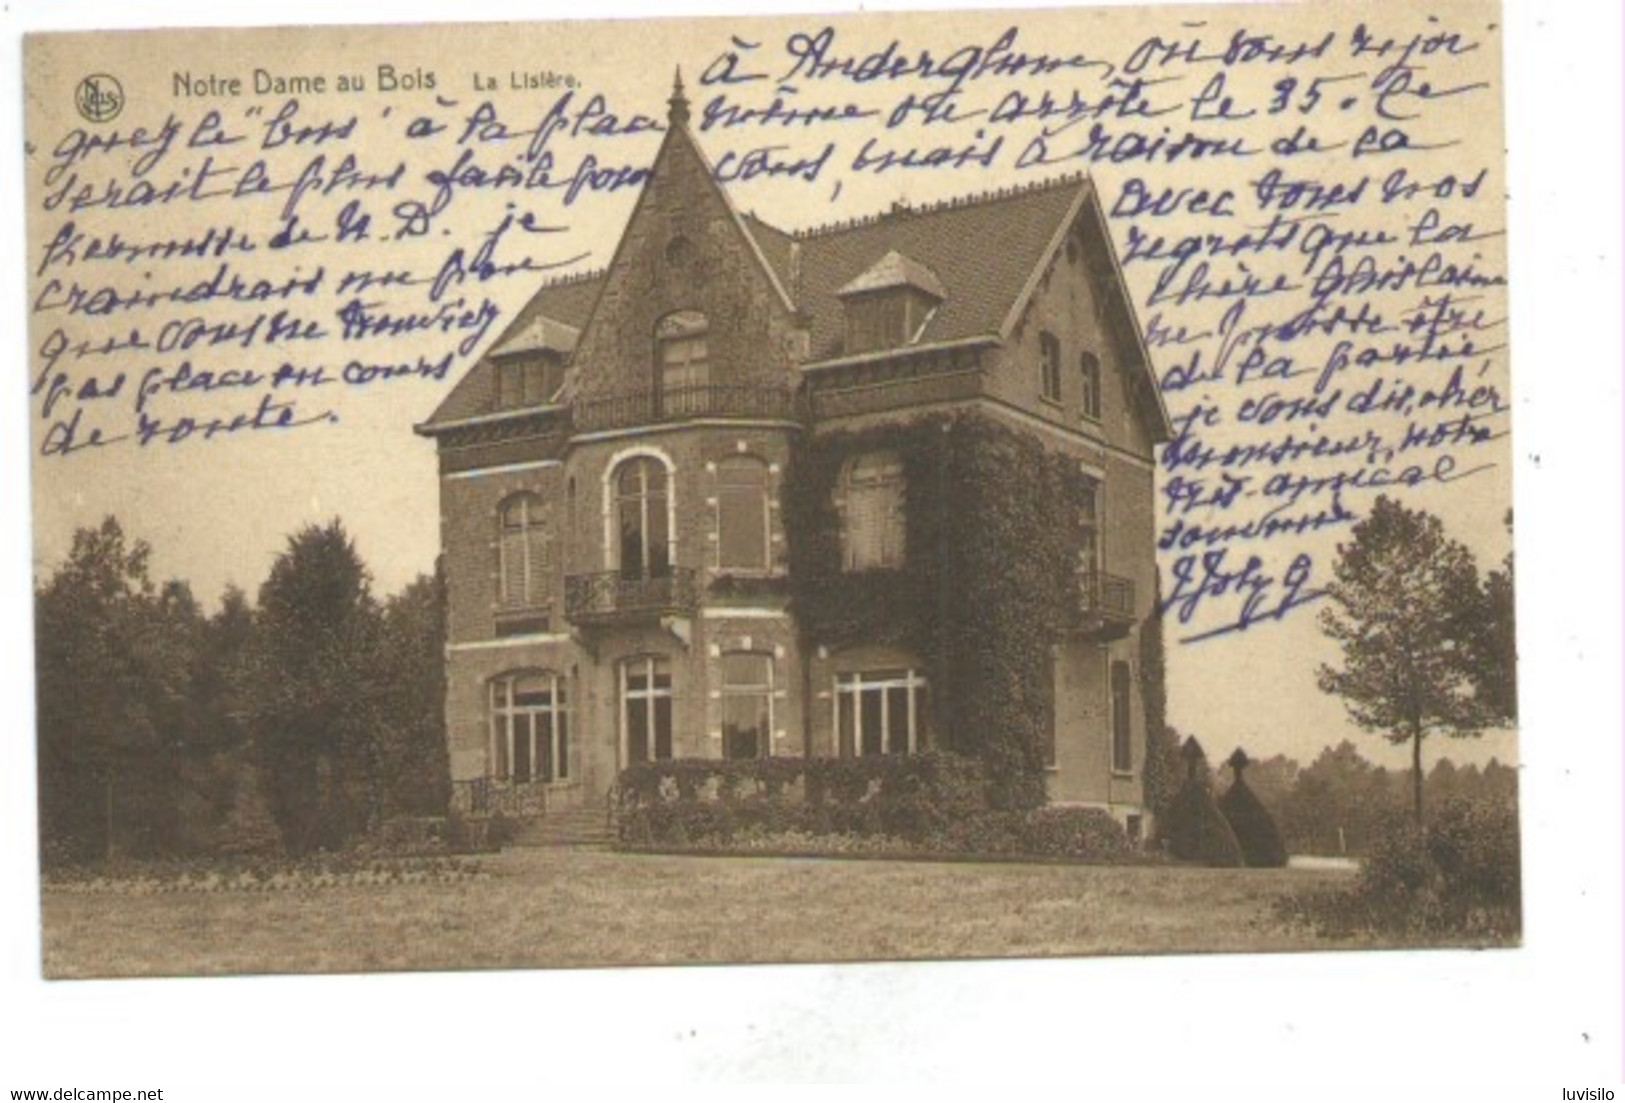 Notre Dame au Bois La Lisière.
NELS
à Anderghem, où vous rejoi
gnez le "bus" à la place même où arrête le 35. Ce
serait le plus facile pour vous, mais à raison de la
kermesse de N. D. je
craindrais un peu
que vous ne trouviez
pas place en cours
de route.
avec tous nos
regrets que la
chère Ghislaine
ne puisse être
de la partie,
je vous dis, cher
Monsieur, notre
très amical
souvenir
luvisilo